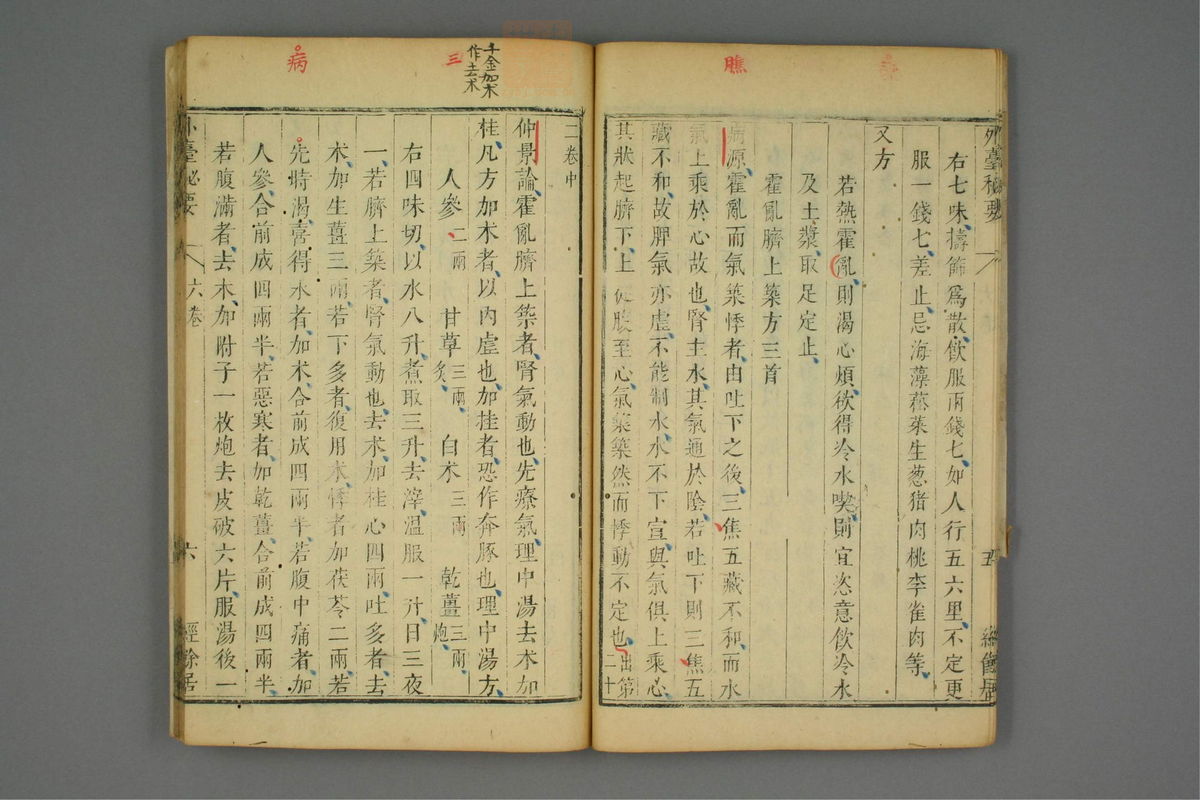 外臺秘要
五
經餘居
右七味擣篩爲散飲服兩錢匕如人行五六里不定更
服一錢匕差止忌海藻菘菜生葱猪肉桃李雀肉等
又方
若熱霍亂則渴心煩欲得冷水喫則宜恣意飲冷水
及土漿取足定止
霍亂臍上築方三首
病源霍亂而氣築悸者由吐下之後三焦五藏不和而水
氣上乘於心故也腎主水其氣通於陰若吐下則三焦五
藏不和故脾氣亦虛不能制水水不下宣與氣俱上乘心
其狀起臍下上從腹至心氣築築然而悸動不定也出第二十
二卷中
仲景論霍亂臍上築者腎氣動也先療氣理中湯去朮加
桂凡方加朮者以内虛也加桂者恐作奔豚也理中湯方
人參二兩 甘草三兩炙 白朮三兩 乾薑三兩炮
右四味切以水八升煮取三升去滓溫服一升日三夜
一若臍上築者腎氣動也去朮加桂心四兩吐多者去
朮加生薑三兩若下多者復用朮悸者加茯苓二兩若
先時渴喜得水者加朮合前成四兩半若腹中痛者加
人參合前成四兩半若惡寒者加乾薑合前成四兩半
若腹滿者去朮加附子一枚炮去皮破六片服湯後一
外臺秘要
六卷
六
經餘居
臕
千金加朮
作去朮
三
病